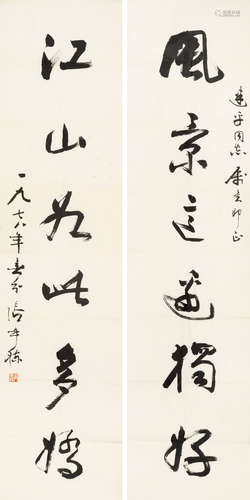 達平同志屬書即正
風景這邊獨好
江山如此多嬌
一九七八年春分